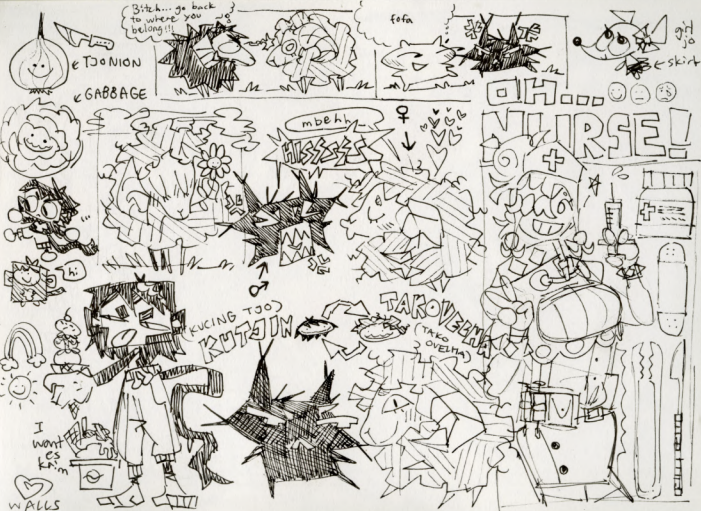 Bitch... go back
to where you
belong!!!
fofa
girl
jo
← skirt
← TJONION
← GABBAGE
OH...
NURSE!
mbehh
HISSSSS
♀
♂
hi
(KUCING TJO)
KUTJIN
TAKOVELHA
(TAKO
OVELHA)
I
want
es
krim
WALLS